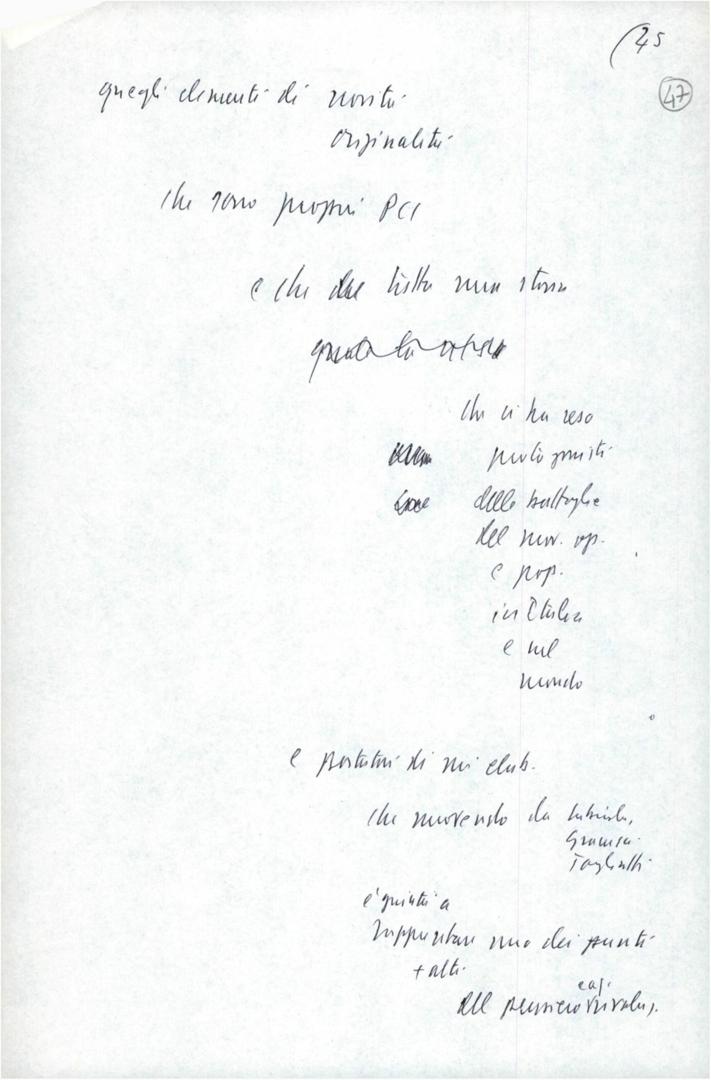 (45
47
quegli elementi di novità
originalità
che sono propri PCI
e che da tutta una storia
che ci ha reso
protagonisti
delle battaglie
del mov. op.
e pop.
in Italia
e nel
mondo
e portatori di un' elab.
che muovendo da Labriola,
Gramsci
Togliatti
è giunta a
rappresentare uno dei punti
+ alti
e az.
del pensiero rivoluz.